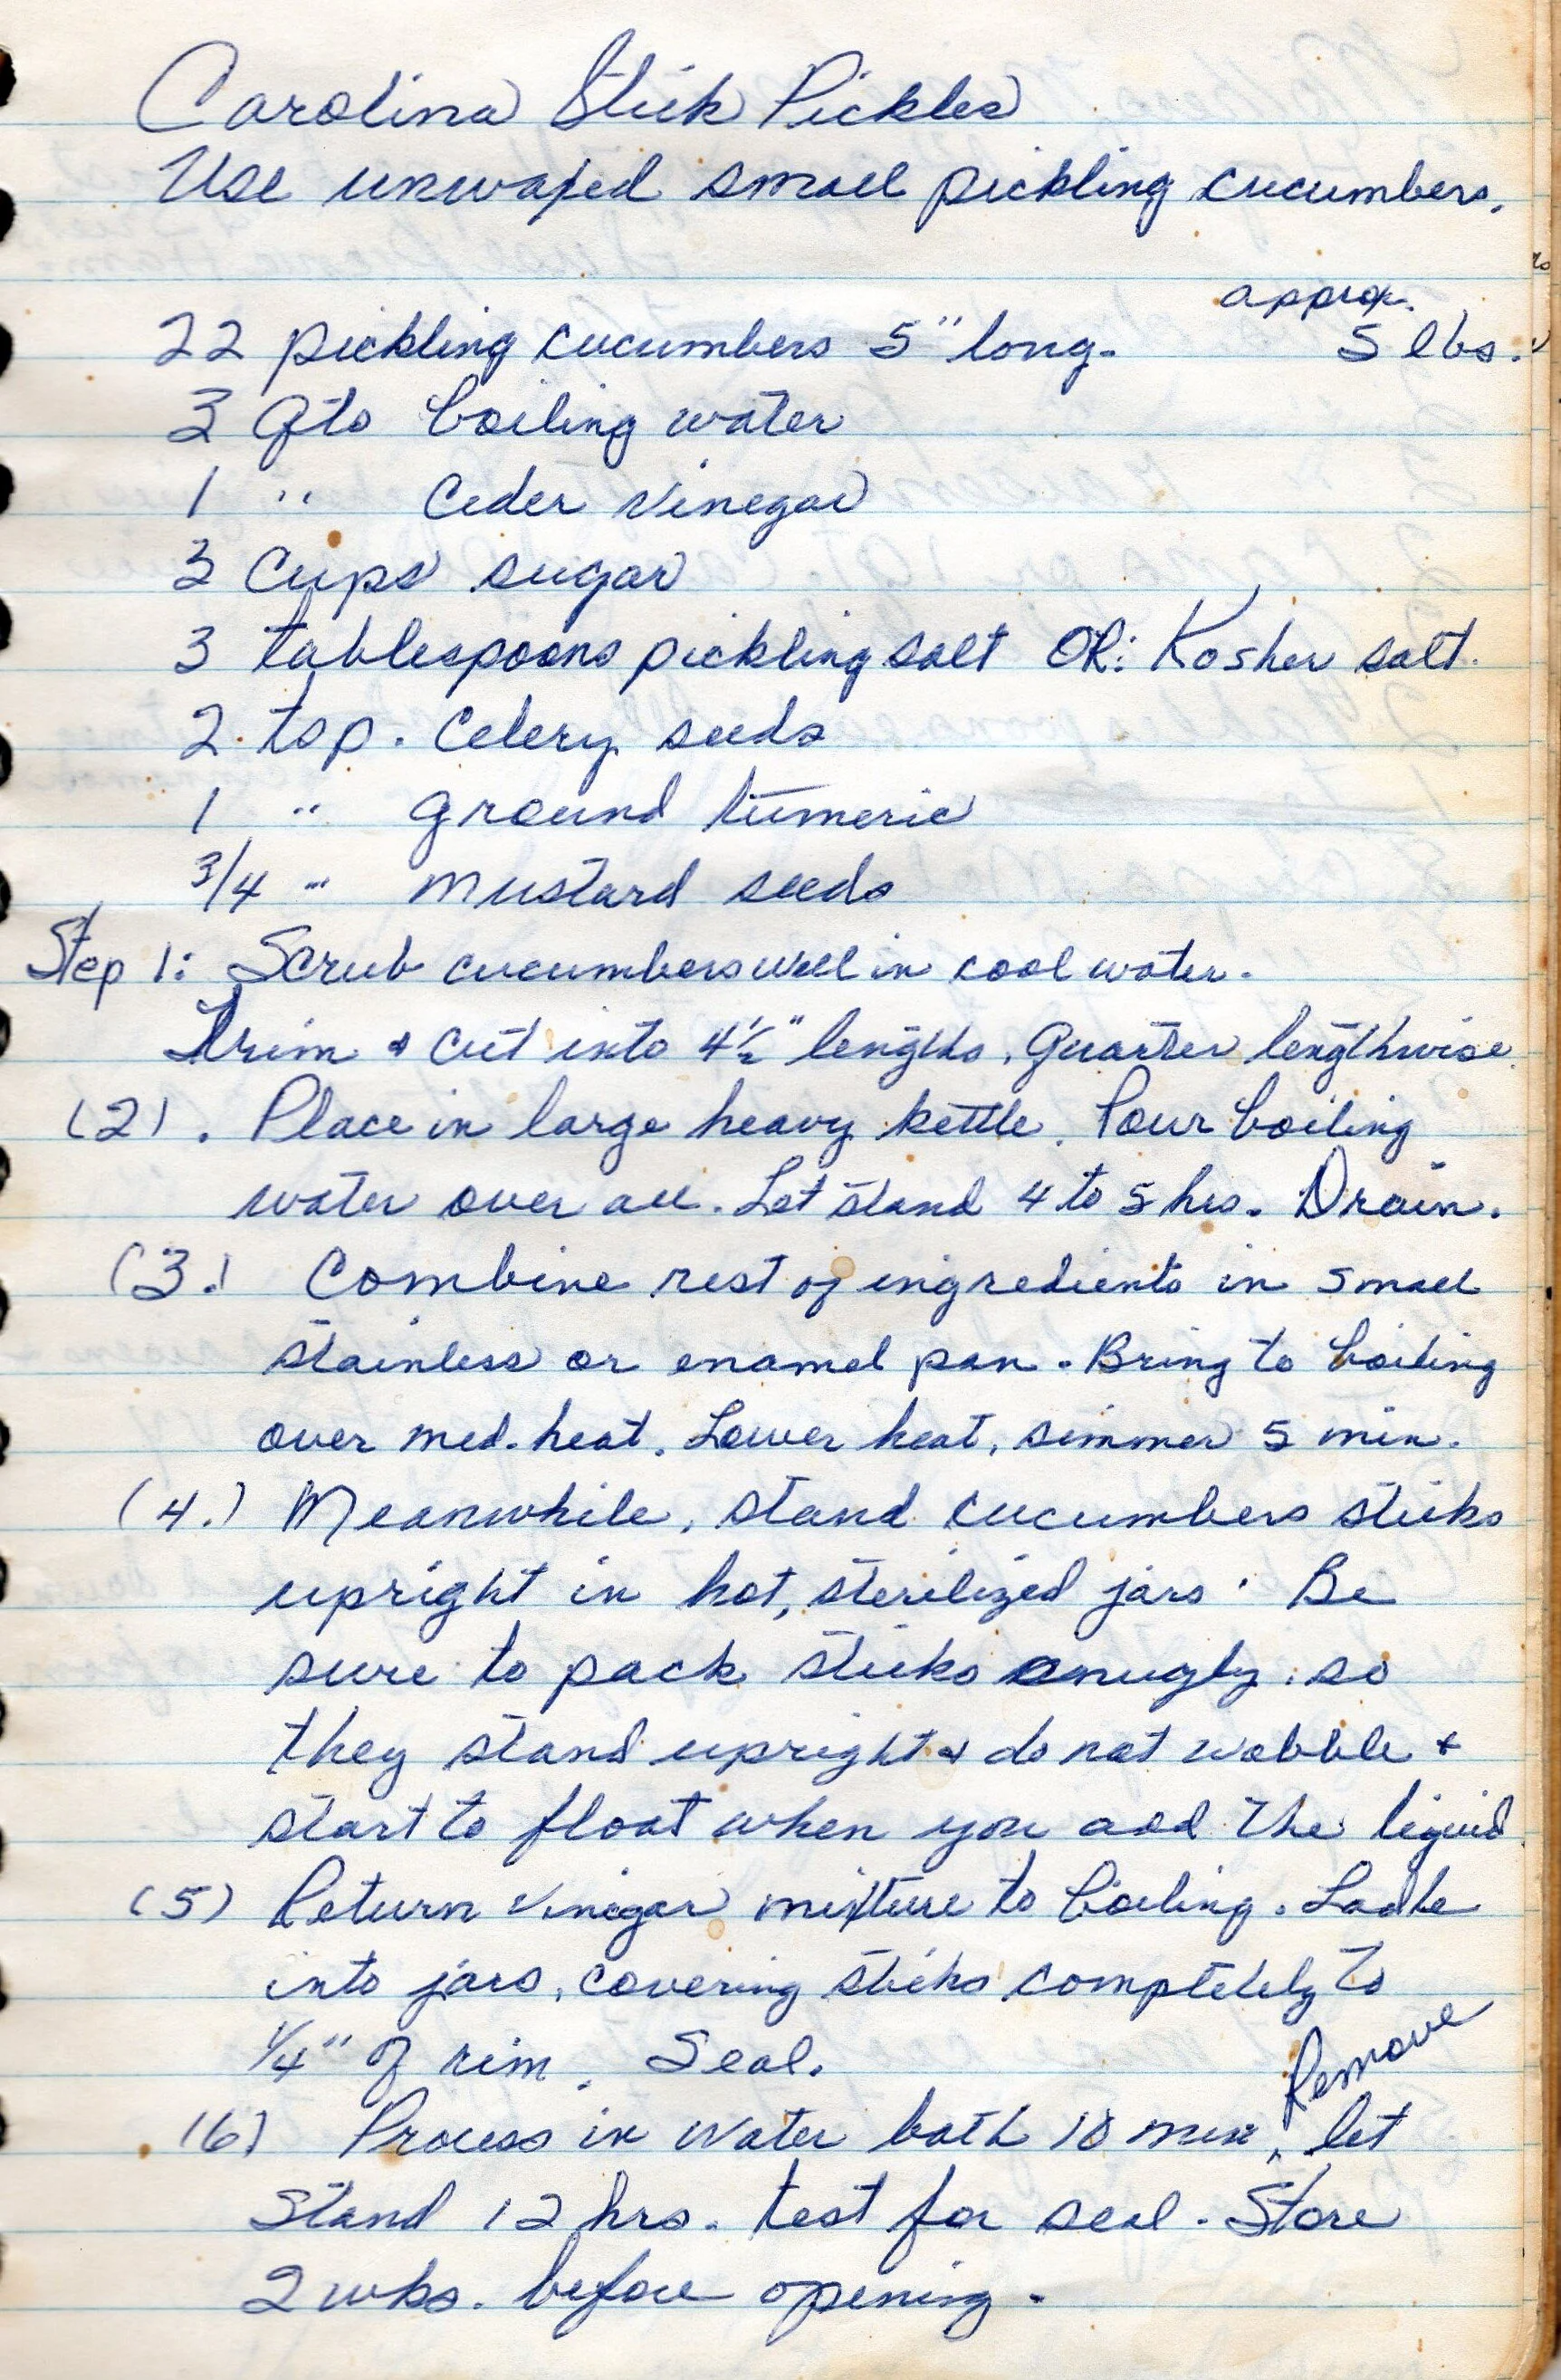 Carolina Stick Pickles
Use unwaxed small pickling cucumbers.
approx.
22 pickling cucumbers 5" long. 5 lbs.
3 Qts boiling water
1 " Cider Vinegar
3 Cups sugar
3 tablespoons pickling salt OR: Kosher salt.
2 tsp. Celery seeds
1 " ground tumeric
3/4 " mustard seeds
Step 1: Scrub cucumbers well in cool water.
Trim & cut into 4½" lengths, Quarter lengthwise.
(2). Place in large heavy kettle. Pour boiling
water over all. Let stand 4 to 5 hrs. Drain.
(3.) Combine rest of ingredients in small
stainless or enamel pan. Bring to boiling
over med. heat. Lower heat, simmer 5 min.
(4.) Meanwhile, stand cucumbers sticks
upright in hot, sterilized jars. Be
sure to pack sticks snugly so
they stand upright & do not wobble &
start to float when you add the liquid.
(5) Return vinegar mixture to boiling. Ladle
into jars, covering sticks completely to
1/4" of rim. Seal.
Remove
(6) Process in water bath 10 min, let
Stand 12 hrs. test for seal. Store
2 wks. before opening.